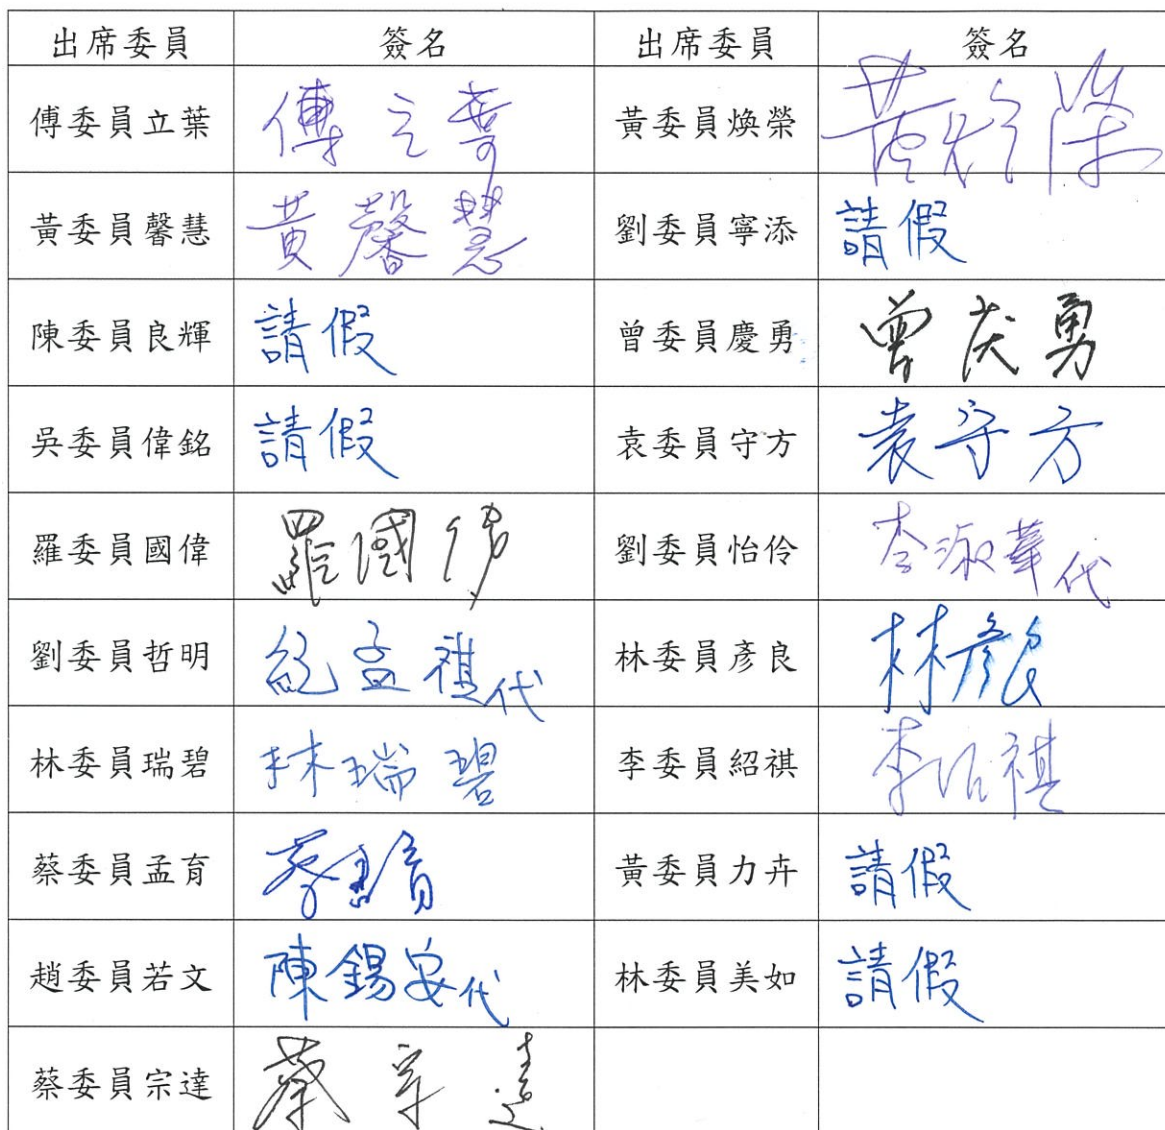 出席委員 簽名 出席委員 簽名
傅委員立葉 傅立葉 黃委員煥榮 黃煥榮
黃委員馨慧 黃馨慧 劉委員寧添 請假
陳委員良輝 請假 曾委員慶勇 曾慶勇
吳委員偉銘 請假 袁委員守方 袁守方
羅委員國偉 羅國偉 劉委員怡伶 李淑華代
劉委員哲明 紀孟祺代 林委員彥良 林彥良
林委員瑞碧 林瑞碧 李委員紹祺 李紹祺
蔡委員孟育 蔡孟育 黃委員力卉 請假
趙委員若文 陳錫安代 林委員美如 請假
蔡委員宗達 蔡宗達